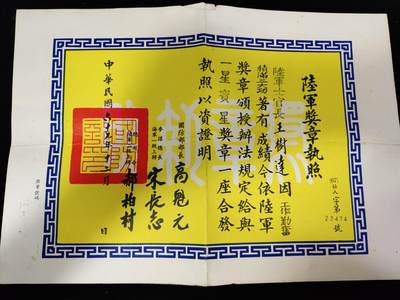 陸軍獎章執照
(67)
字第23474號
陸軍士官長王樹達因工作勤奮
著有成績今依陸軍
獎章頒授辦法規定給與
一星寶星獎章一座合發
執照以資證明
國防部長高魁元
參謀總長海軍一級上將宋長志
郝柏村
中華民國六十七年十二月 日